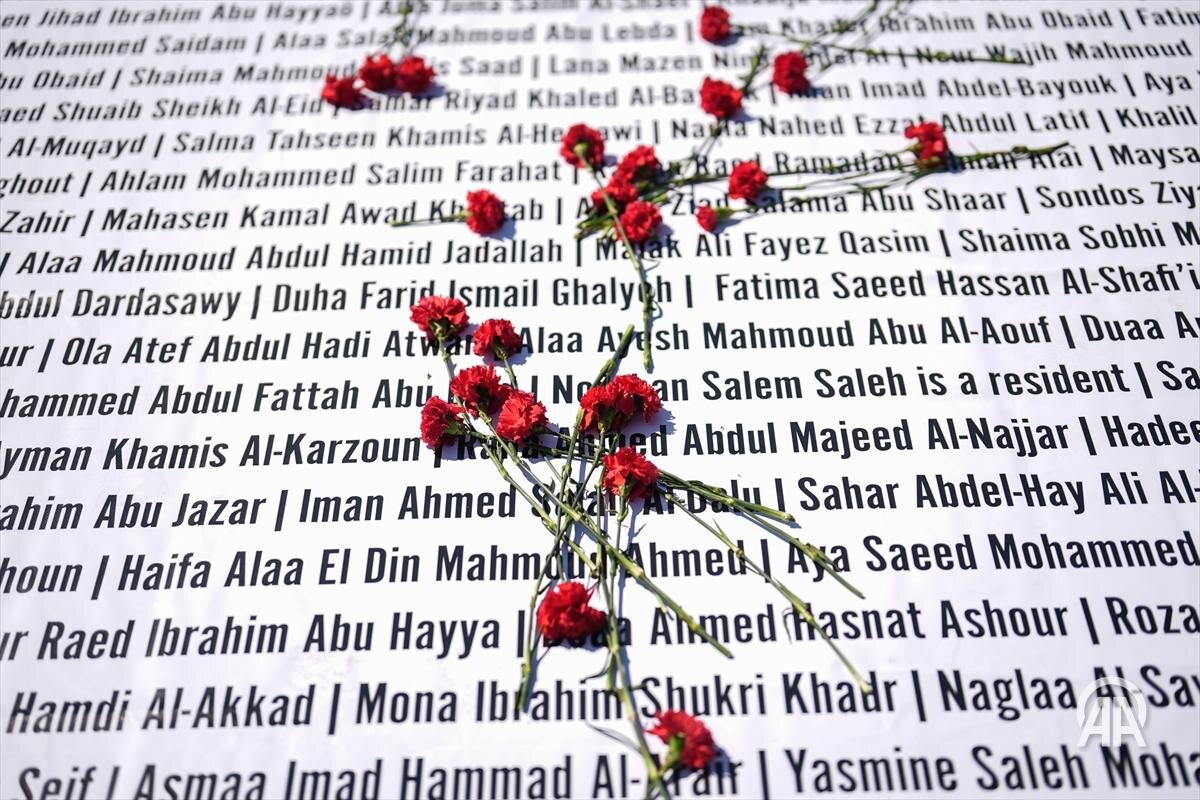 en Jihad Ibrahim Abu Hayya | Juma Salim
Mohammed Saidam | Alaa Mahmoud Abu Lebda | Khader Ibrahim Abu Obaid | Fatim
bu Obaid | Shaima Mahmoud Saad | Lana Mazen | Nour Wajih Mahmoud
aed Shuaib Sheikh Al-Eid | Samar Riyad Khaled | Iman Imad Abdel-Bayouk | Aya
Al-Muqayd | Salma Tahseen Khamis | Nahed Ezzat Abdul Latif | Khalil
ghout | Ahlam Mohammed Salim Farahat | Raed Ramadan Alai | Maysa
Zahir | Mahasen Kamal Awad | Salama Abu Shaar | Sondos Ziy
| Alaa Mahmoud Abdul Hamid Jadallah | Malak Ali Fayez Qasim | Shaima Sobhi M
bdul Dardasawy | Duha Farid Ismail Ghalyeh | Fatima Saeed Hassan Al-Shafi'i
ur | Ola Atef Abdul Hadi | Alaa Ayesh Mahmoud Abu Al-Aouf | Duaa A
hammed Abdul Fattah Abu | Salem Saleh is a resident | Sa
yman Khamis Al-Karzoun | Rana Ahmed Abdul Majeed Al-Najjar | Hadee
ahim Abu Jazar | Iman Ahmed | Sahar Abdel-Hay Ali Al-
houn | Haifa Alaa El Din Mahmoud Ahmed | Aya Saeed Mohammed
ur Raed Ibrahim Abu Hayya | Ahmed Hasnat Ashour | Roza
Hamdi Al-Akkad | Mona Ibrahim Shukri Khadr | Naglaa Al-Sav
Seif | Asmaa Imad Hammad | Yasmine Saleh Moha
AA